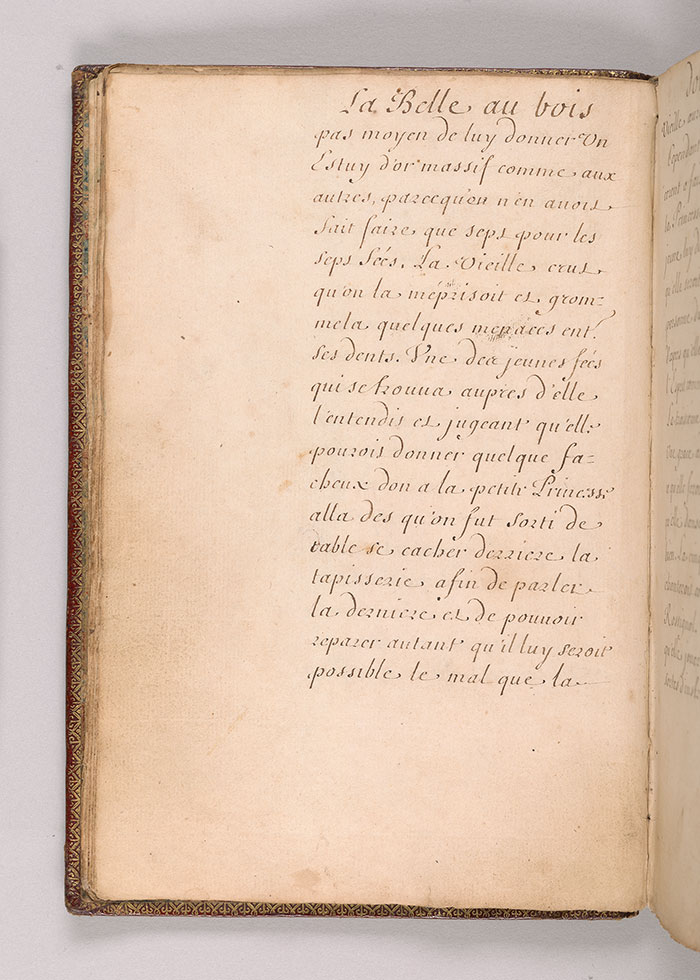 La Belle au bois
pas moyen de luy donner Un
Estuy d'or massif comme aux
autres, parcequ'on n'en avoit
fait faire que sept pour les
sept fées. La Vieille crut
qu'on la méprisoit et grom=
mela quelques menaces ent.
ses dents. Vne des jeunes fées
qui se trouua aupres d'elle
l'entendit et jugeant qu'elle
pouroit donner quelque fa=
cheux don a la petite Princesse
alla des qu'on fut sorti de
table se cacher derriere la
tapisserie afin de parler
la derniere et de pouuoir
reparer autant qu'il luy seroit
possible le mal que la